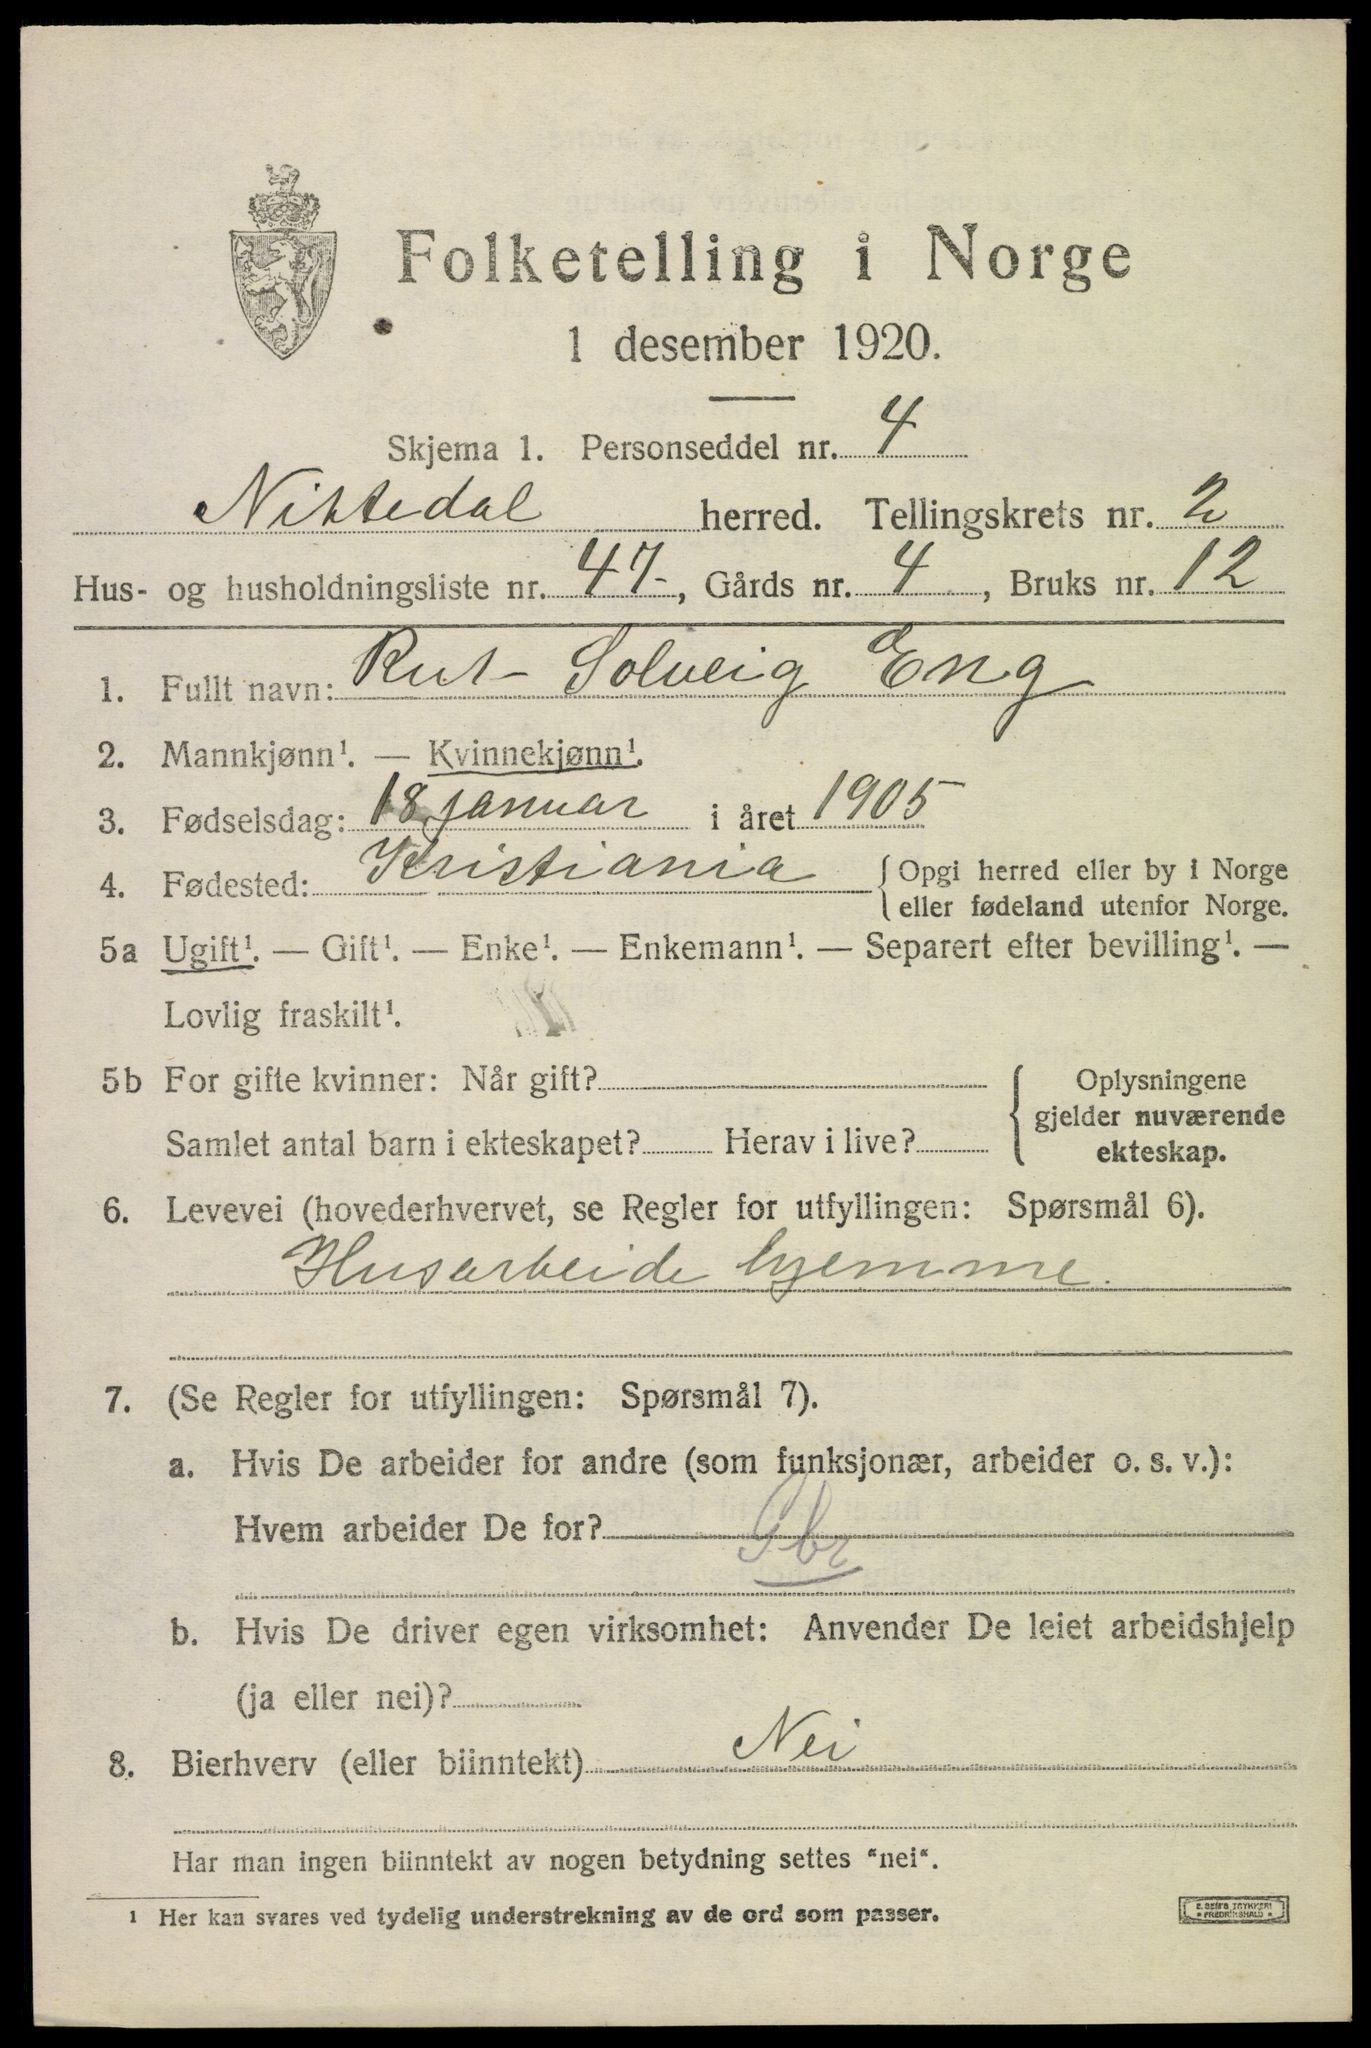 Folketelling i Norge
1 desember 1920.
Skjema 1. Personseddel nr. 4
Nittedal herred. Tellingskrets nr. 2
Hus- og husholdningsliste nr. 47-, Gårds nr. 4, Bruks nr. 12
1. Fullt navn: Rut Solveig Eng
2. Mannkjønn¹. — Kvinnekjønn¹.
3. Fødselsdag: 18 januar i året 1905
4. Fødested: Kristiania { Opgi herred eller by i Norge
eller fødeland utenfor Norge.
5a Ugift¹. — Gift¹. — Enke¹. — Enkemann¹. — Separert efter bevilling¹. —
Lovlig fraskilt¹.
5b For gifte kvinner: Når gift? { Oplysningene
gjelder nuværende
Samlet antal barn i ekteskapet? Herav i live?
ekteskap.
6. Levevei (hovederhvervet, se Regler for utfyllingen: Spørsmål 6).
Husarbeide hjemme.
7. (Se Regler for utfyllingen: Spørsmål 7).
a. Hvis De arbeider for andre (som funksjonær, arbeider o. s. v.):
Hvem arbeider De for?
b. Hvis De driver egen virksomhet: Anvender De leiet arbeidshjelp
(ja eller nei)?
8. Bierhverv (eller biinntekt) Nei
Har man ingen biinntekt av nogen betydning settes "nei".
¹ Her kan svares ved tydelig understrekning av de ord som passer.
E. SEM'S TRYKKERI
* FREDRIKSHALD *